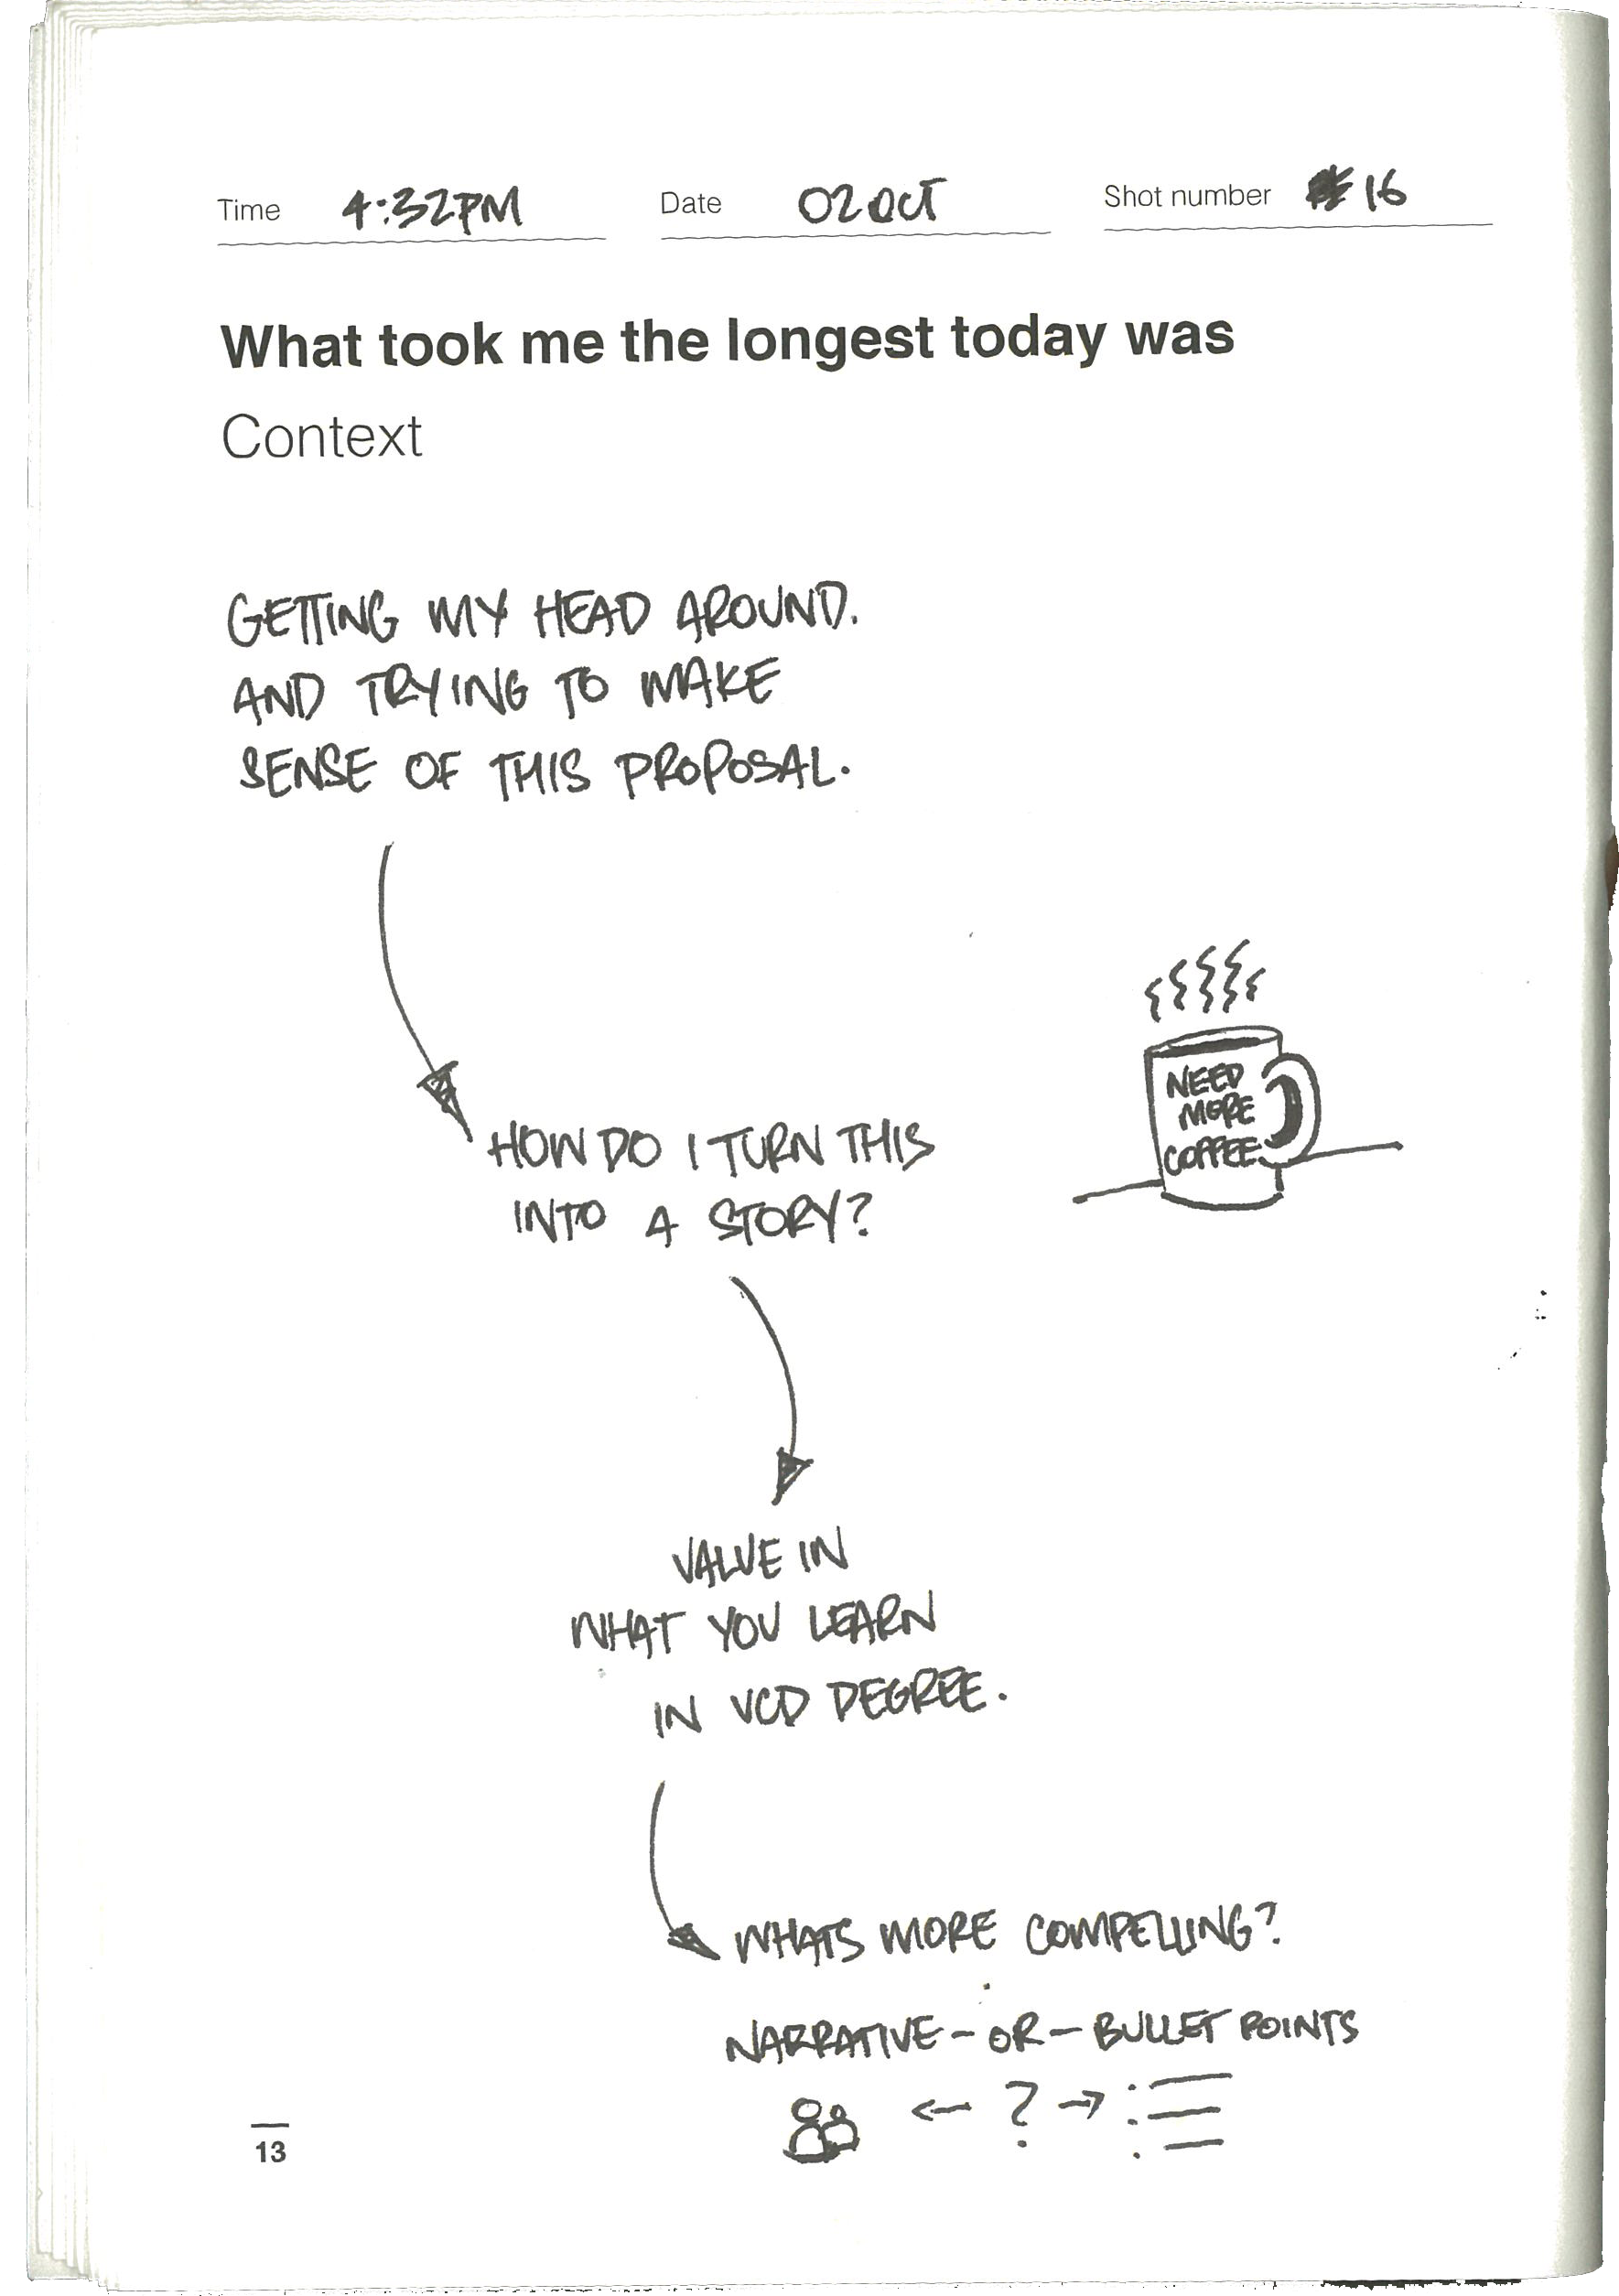 Time 4:32PM Date 02 OCT Shot number #16
What took me the longest today was
Context
GETTING MY HEAD AROUND.
AND TRYING TO MAKE
SENSE OF THIS PROPOSAL.
NEED
MORE
COFFEE
HOW DO I TURN THIS
INTO A STORY?
VALUE IN
WHAT YOU LEARN
IN VCD DEGREE.
WHATS MORE COMPELLING?
NARRATIVE - OR - BULLET POINTS
← ? →
13